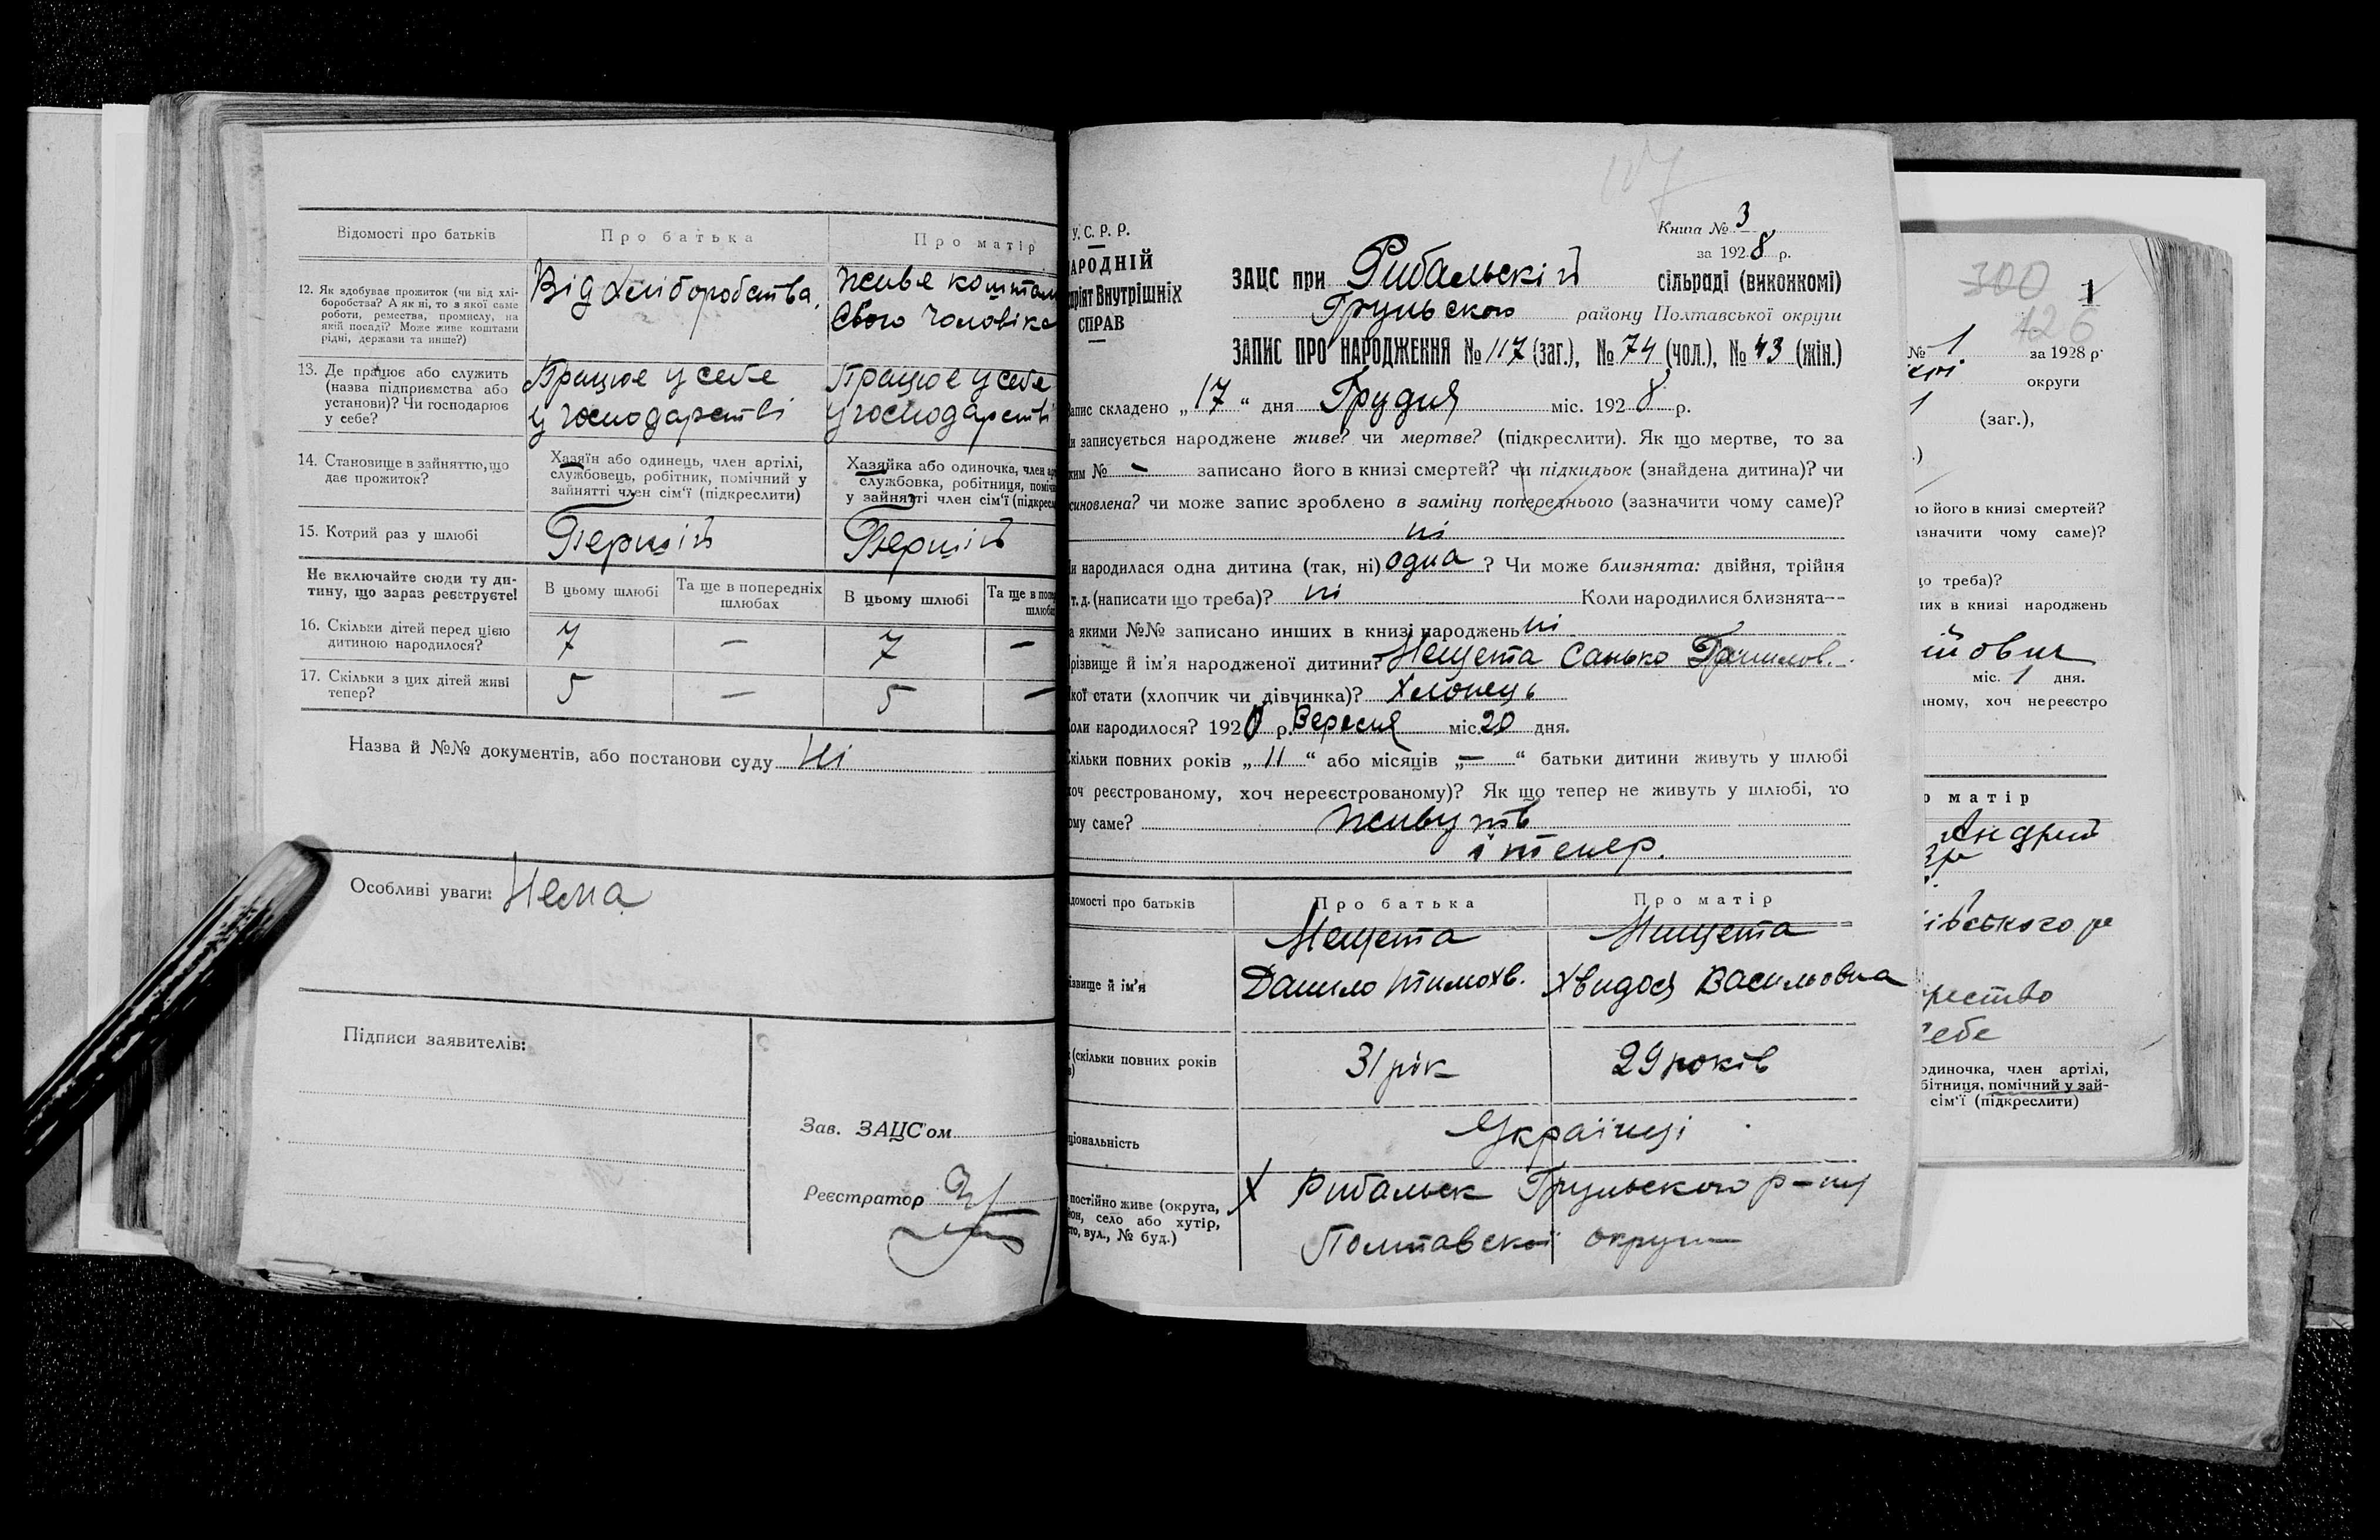 Відомості про батьків
Про батька
Про матір
12. Як здобуває прожиток (чи від хлі-
боробства? А як ні, то з якої саме
роботи, ремества, промислу, на
якій посаді? Може живе коштами
рідні, держави та инше?)
Від хліборобства.
живе коштом
свого чоловіка
13. Де працює або служить
(назва підприємства або
установи)? Чи господарює
у себе?
Працює у себе
у господарстві
Працює у себе
у господарстві
14. Становище в зайняттю, що
дає прожиток?
Хазяїн або одинець, член артілі,
службовець, робітник, помічний у
зайнятті член сім'ї (підкреслити)
Хазяйка або одиночка, член
службовка, робітниця,
у зайнятті член сім'ї
15. Котрий раз у шлюбі
Перший
Перший
Не включайте сюди ту ди-
тину, що зараз реєструєте!
В цьому шлюбі
Та ще в попередніх
шлюбах
В цьому шлюбі
Та ще в
16. Скільки дітей перед цією
дитиною народилося?
7 — 7 —
17. Скільки з цих дітей живі
тепер?
5 — 5 —
Назва й №№ документів, або постанови суду Ні
Особливі уваги: Нема
Підписи заявителів:
Зав. ЗАЦС'ом
Реєстратор
У. С. Р. Р.
АРОДНІЙ
ріят Внутрішніх
СПРАВ
107
Книга № 3
за 1928 р.
ЗАЦС при Рибальскій сільраді (виконкомі)
Грунського району Полтавської округи
ЗАПИС ПРО НАРОДЖЕННЯ № 117 (заг.), № 74 (чол.), № 43 (жін.)
Запис складено „17“ дня Грудня міс. 1928 р.
и записується народжене живе? чи мертве? (підкреслити). Як що мертве, то за
ким № — записано його в книзі смертей? чи підкидьок (знайдена дитина)? чи
синовлена? чи може запис зроблено в заміну попереднього (зазначити чому саме)?
ні
и народилася одна дитина (так, ні) одна? Чи може близнята: двійня, трійня
т. д. (написати що треба)? ні Коли народилися близнята—
а якими №№ записано инших в книзі народжень ні
різвище й ім'я народженої дитини? Нещета Санько Данилов.
кої стати (хлопчик чи дівчинка)? Хлопець
Коли народилося? 1920 р. Вересня міс. 20 дня.
Скільки повних років „11“ або місяців „—“ батьки дитини живуть у шлюбі
хоч реєстрованому, хоч нереєстрованому)? Як що тепер не живуть у шлюбі, то
ому саме? живуть
і тепер.
ідомості про батьків
Про батька
Про матір
ізвище й ім'я
Нещета
Данило Тимохв.
Нищета
Хвидося Васильовна
(скільки повних років
31 рік
29 років
ціональність
Українці
постійно живе (округа,
он, село або хутір,
то, вул., № буд.)
х Рибальск Грунського р-ну
Полтавскої округи
300
426
1
№ 1. за 1928 р.
округи
1 (заг.),
о його в книзі смертей?
значити чому саме)?
о треба)?
их в книзі народжень
міс. 1 дня.
ному, хоч нереєстро
о матір
Андрій
івського
себе
одиночка, член артілі,
бітниця, помічний у зай-
сім'ї (підкреслити)